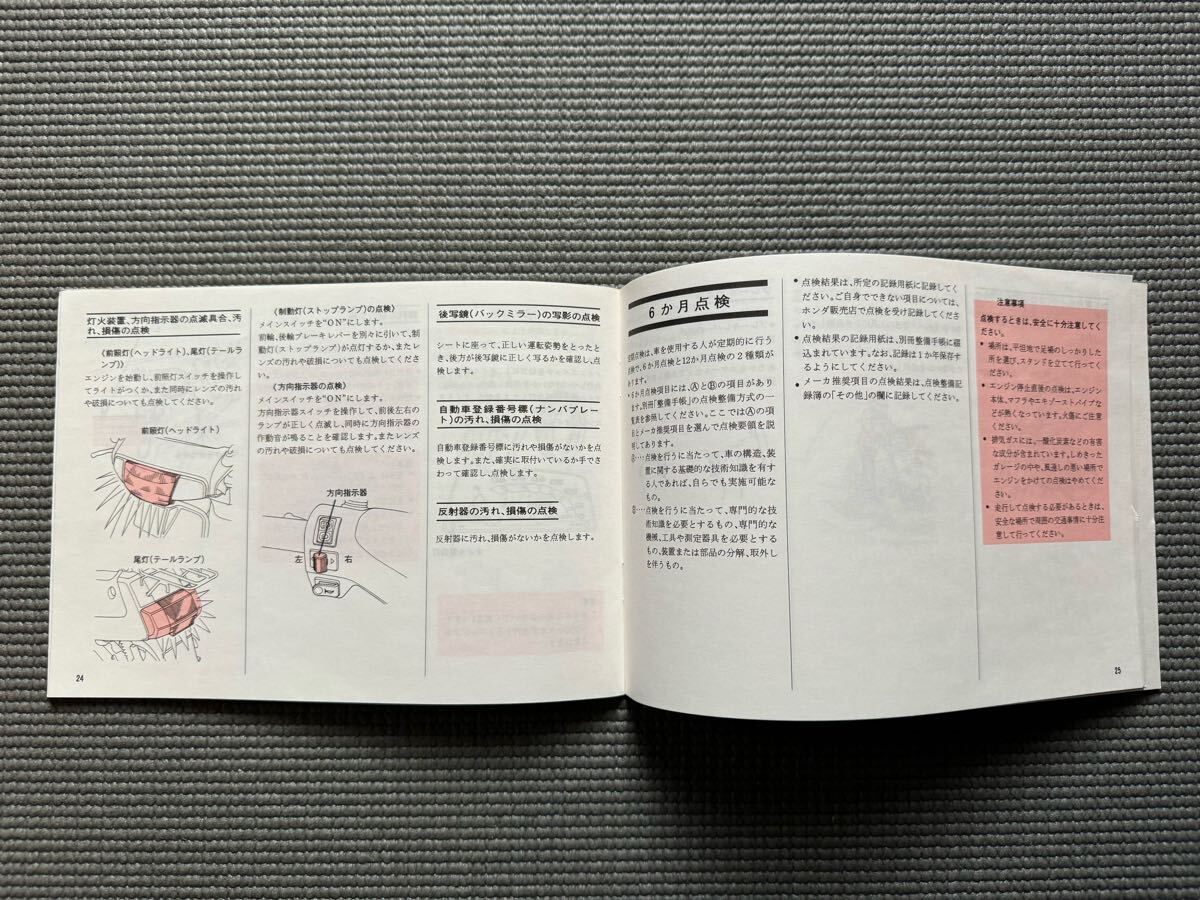 灯火装置、方向指示器の点滅具合、汚
れ、損傷の点検
《前照灯(ヘッドライト)、尾灯(テールラ
ンプ)》
エンジンを始動し、前照灯スイッチを操作し
てライトがつくか、また同時にレンズの汚れ
や破損についても点検してください。
前照灯(ヘッドライト)
尾灯(テールランプ)
24
《制動灯(ストップランプ)の点検》
メインスイッチを“ON”にします。
前輪、後輪ブレーキレバーを別々に引いて、制
動灯(ストップランプ)が点灯するか、またレ
ンズの汚れや破損についても点検してくださ
い。
《方向指示器の点検》
メインスイッチを“ON”にします。
方向指示器スイッチを操作して、前後左右の
ランプが正しく点滅し、同時に方向指示器の
作動音が鳴ることを確認します。またレンズ
の汚れや破損についても点検してください。
方向指示器
左
右
後写鏡(バックミラー)の写影の点検
シートに座って、正しい運転姿勢をとったと
き、後方が後写鏡に正しく写るかを確認し、点
検します。
自動車登録番号標(ナンバプレー
ト)の汚れ、損傷の点検
自動車登録番号標に汚れや損傷がないかを点
検します。また、確実に取付いているか手でさ
わって確認し、点検します。
反射器の汚れ、損傷の点検
反射器に汚れ、損傷がないかを点検します。
6か月点検
点検は、車を使用する人が定期的に行う
点検で、6か月点検と12か月点検の2種類が
あります。
6か月点検項目には、ⒶとⒷの項目があり
ます。別冊「整備手帳」の点検整備方式の一
覧表を参照してください。ここではⒶの項
目とメーカ推奨項目を選んで点検要領を説
明してあります。
Ⓐ…点検を行うに当たって、車の構造、装
置に関する基礎的な技術知識を有す
る人であれば、自らでも実施可能な
もの。
Ⓑ…点検を行うに当たって、専門的な技
術知識を必要とするもの、専門的な
機械、工具や測定器具を必要とする
もの、装置または部品の分解、取外し
を伴うもの。
● 点検結果は、所定の記録用紙に記録してく
ださい。ご自身でできない項目については、
ホンダ販売店で点検を受け記録してくださ
い。
● 点検結果の記録用紙は、別冊整備手帳に組
込まれています。なお、記録は1か年保存す
るようにしてください。
● メーカ推奨項目の点検結果は、点検整備記
録簿の「その他」の欄に記録してください。
注意事項
点検するときは、安全に十分注意してく
ださい。
● 場所は、平坦地で足場のしっかりした
所を選び、スタンドを立てて行ってく
ださい。
● エンジン停止直後の点検は、エンジン
本体、マフラやエキゾーストパイプな
どが熱くなっています。火傷にご注意
ください。
● 排気ガスには、一酸化炭素などの有害
な成分が含まれています。しめきった
ガレージの中や、風通しの悪い場所で
エンジンをかけての点検はやめてくだ
さい。
● 走行して点検する必要があるときは、
安全な場所で周囲の交通事情に十分注
意して行ってください。
25